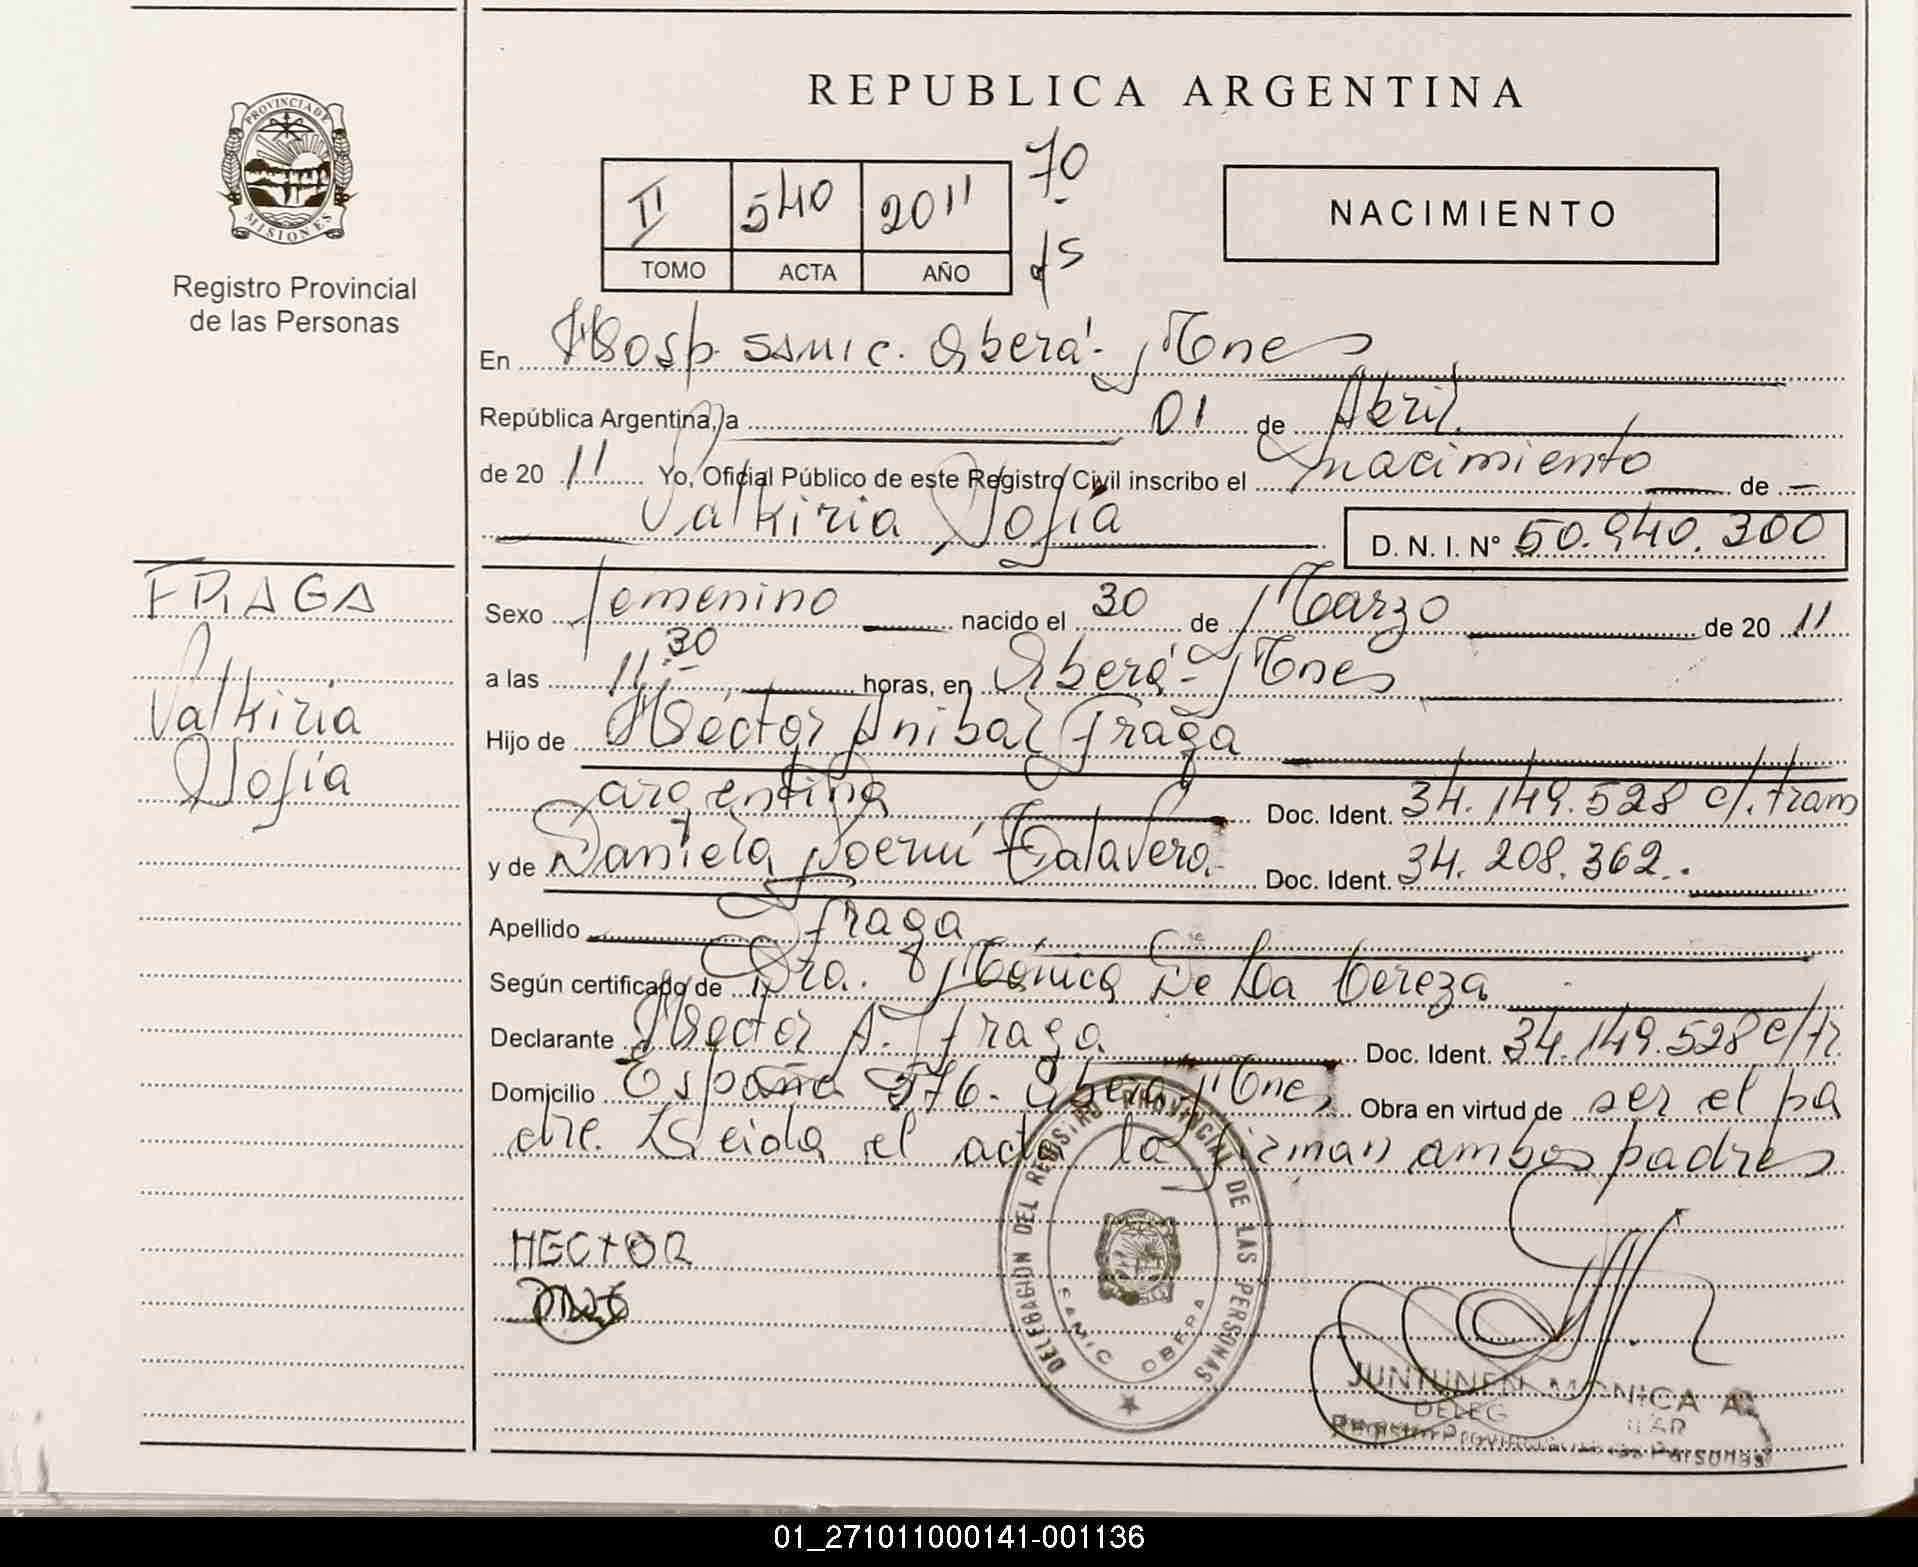 REPUBLICA ARGENTINA
PROVINCIA DE MISIONES
Registro Provincial
de las Personas
II 540 2011 70
TOMO ACTA AÑO
NACIMIENTO
En Hosp. SAMIC. Oberá - Mnes
República Argentina, a 01 de Abril.
de 20 11 Yo, Oficial Público de este Registro Civil inscribo el nacimiento de
Valkiria Sofía D. N. I. N° 50.940.300
FRAGA
Valkiria
Sofía
Sexo femenino nacido el 30 de Marzo de 20 11
a las 11:30 horas, en Oberá - Mnes
Hijo de Héctor Anibal Fraga
argentina Doc. Ident. 34.149.528 c/. tram
y de Daniela Noemí Talavera Doc. Ident. 34.208.362.
Apellido Fraga
Según certificado de Dra. Mónica De La Cereza
Declarante Hector A. Fraga Doc. Ident. 34.149.528 c/tr.
Domicilio España 376. Oberá Mnes Obra en virtud de ser el pa
dre. Leida el acta la firman ambos padres
HECTOR
DELEGACION DEL REGISTRO PROVINCIAL DE LAS PERSONAS
SAMIC OBERA
JUNTUNEN MONICA A.
Registro Provincial de las Personas
01_271011000141-001136